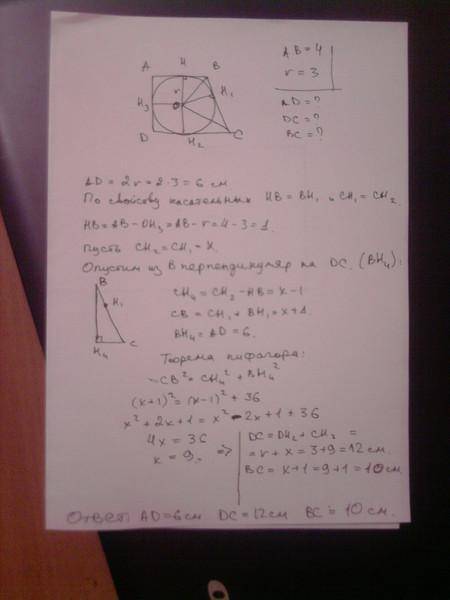 A H B
AB = 4
r = 3
r
H₁
H₃ O
AD = ?
DC = ?
BC = ?
D H₂ C
AD = 2r = 2·3 = 6 см.
По свойству касательных HB = BH₁ и CH₁ = CH₂
HB = AB - OH₃ = AB - r = 4 - 3 = 1.
Пусть CH₂ = CH₁ = x.
Опустим из B перпендикуляр на DC. (BH₄):
B
H₁
H₄ C
CH₄ = CH₂ - HB = x - 1
CB = CH₁ + BH₁ = x + 1.
BH₄ = AD = 6.
Теорема пифагора:
CB² = CH₄² + BH₄²
(x+1)² = (x-1)² + 36
x² + 2x + 1 = x² - 2x + 1 + 36
4x = 36
x = 9. =>
DC = DH₂ + CH₂ =
= r + x = 3 + 9 = 12 см.
BC = x + 1 = 9 + 1 = 10 см.
Ответ AD = 6 см DC = 12 см BC = 10 см.